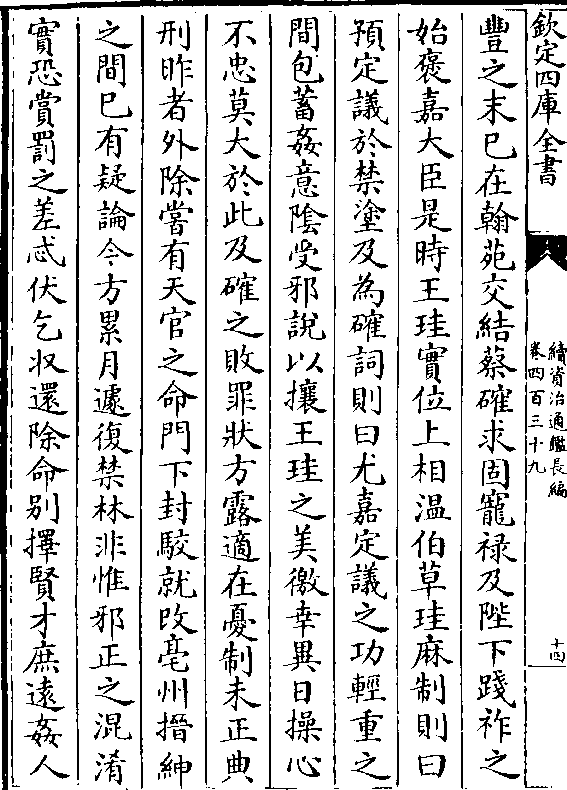 欽定四庫全書
續資治通鑑長編
卷四百三十九
十四
豐之末已在翰苑交結蔡確求固寵禄及陛下踐祚之
始褒嘉大臣是時王珪實位上相温伯草珪麻制則曰
預定議於禁塗及為確詞則曰尤嘉定議之功輕重之
間包蓄姦意隂受邪說以攘王珪之美徼幸異日操心
不忠莫大於此及確之敗罪狀方露適在憂制未正典
刑昨者外除嘗有天官之命門下封駮就改亳州搢紳
之間已有疑論今方累月遽復禁林非惟邪正之混淆
實恐賞罰之差忒伏乞收還除命别擇賢才庶逺姦人